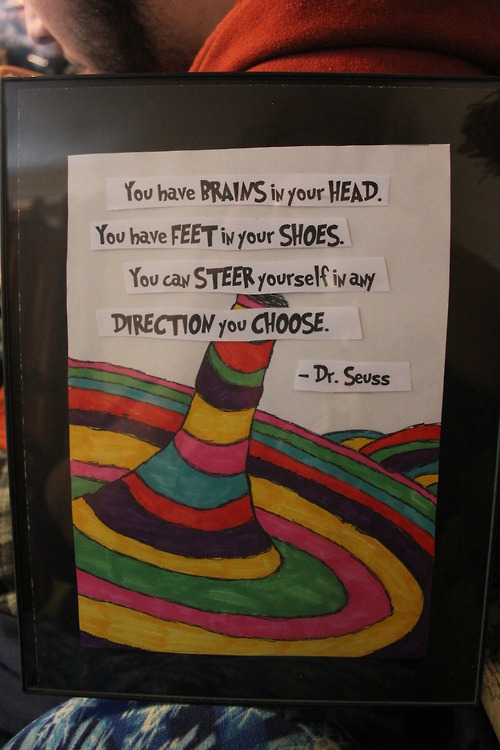 You have BRAINS in your HEAD.
You have FEET in your SHOES.
You can STEER yourself in any
DIRECTION you CHOOSE.
– Dr. Seuss